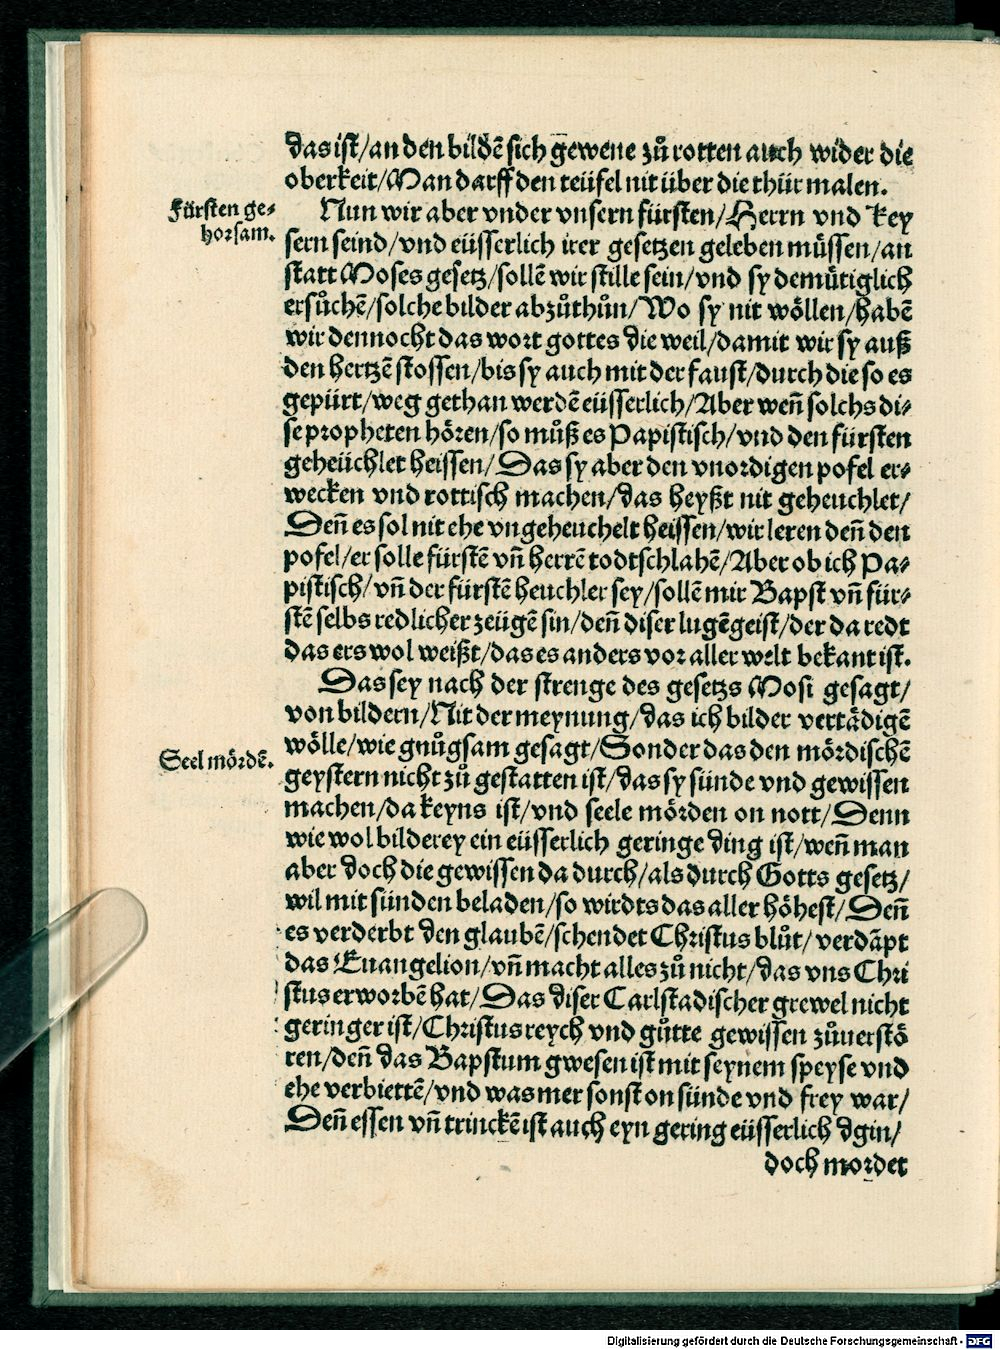 das ist/an den bildē sich gewene zů rotten auch wider die
oberkeit/Man darff den teüfel nit über die thür malen.
Fürsten ge⸗
horsam.
Nun wir aber vnder vnsern fürsten/Herrn vnd key
sern seind/vnd eüsserlich irer gesetzen geleben müssen/an
statt Moses gesetz/sollē wir stille sein/vnd sy demütiglich
ersůchē/solche bilder abzůthůn/Wo sy nit wöllen/habē
wir dennocht das wort gottes die weil/damit wir sy auß
den hertzē stossen/bis sy auch mit der faust/durch die so es
gepürt/weg gethan werdē eüsserlich/Aber weñ solchs di⸗
se propheten hören/so můß es Papistisch/vnd den fürsten
geheüchlet heissen/Das sy aber den vnordigen pofel er⸗
wecken vnd rottisch machen/das heyßt nit geheuchlet/
Deñ es sol nit ehe vngeheuchelt heissen/wir leren deñ den
pofel/er solle fürstē vñ herrē todtschlahē/Aber ob ich Pa⸗
pistisch/vñ der fürstē heuchler sey/sollē mir Bapst vñ für⸗
stē selbs redlicher zeügē sin/deñ diser lugēgeist/der da redt
das ers wol weißt/das es anders vor aller welt bekant ist.
Das sey nach der strenge des gesetzs Mosi gesagt/
von bildern/Nit der meynung/das ich bilder vertädigē
wölle/wie gnůgsam gesagt/Sonder das den mördischē
Seel mördē.
geystern nicht zů gestatten ist/das sy sünde vnd gewissen
machen/da keyns ist/vnd seele mörden on nott/Denn
wie wol bilderey ein eüsserlich geringe ding ist/weñ man
aber doch die gewissen da durch/als durch Gotts gesetz/
wil mit sünden beladen/so wirdts das aller höhest/Deñ
es verderbt den glaubē/schendet Christus blůt/verdāpt
das Euangelion/vñ macht alles zů nicht/das vns Chri
stus erworbē hat/Das diser Carlstadischer grewel nicht
geringer ist/Christus reych vnd gůtte gewissen zůuerstö
ren/deñ das Bapstum gwesen ist mit seynem speyse vnd
ehe verbiettē/vnd was mer sonst on sünde vnd frey war/
Deñ essen vñ trinckē ist auch eyn gering eüsserlich dgin/
doch mordet
Digitalisierung gefördert durch die Deutsche Forschungsgemeinschaft - DFG